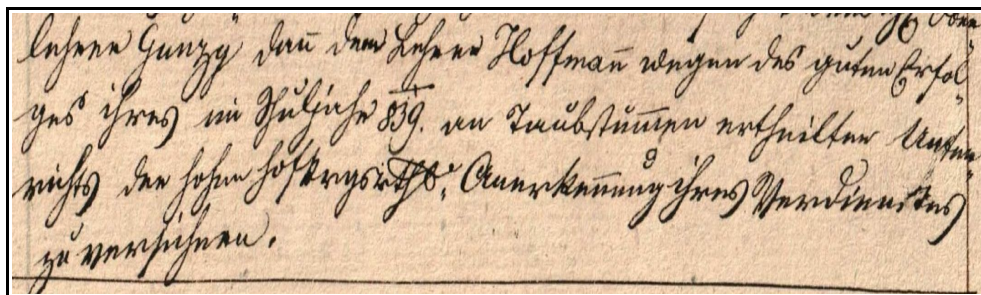 lehrer Gunzy dan̄ dem Lehrer Hoffman̄ wegen des guten Erfol-
ges ihres im Schuljahre 839. an Taubstum̄en ertheilten Unter-
richts der hohen Anerken̄ung ihres Verdienstes
zu versichern.